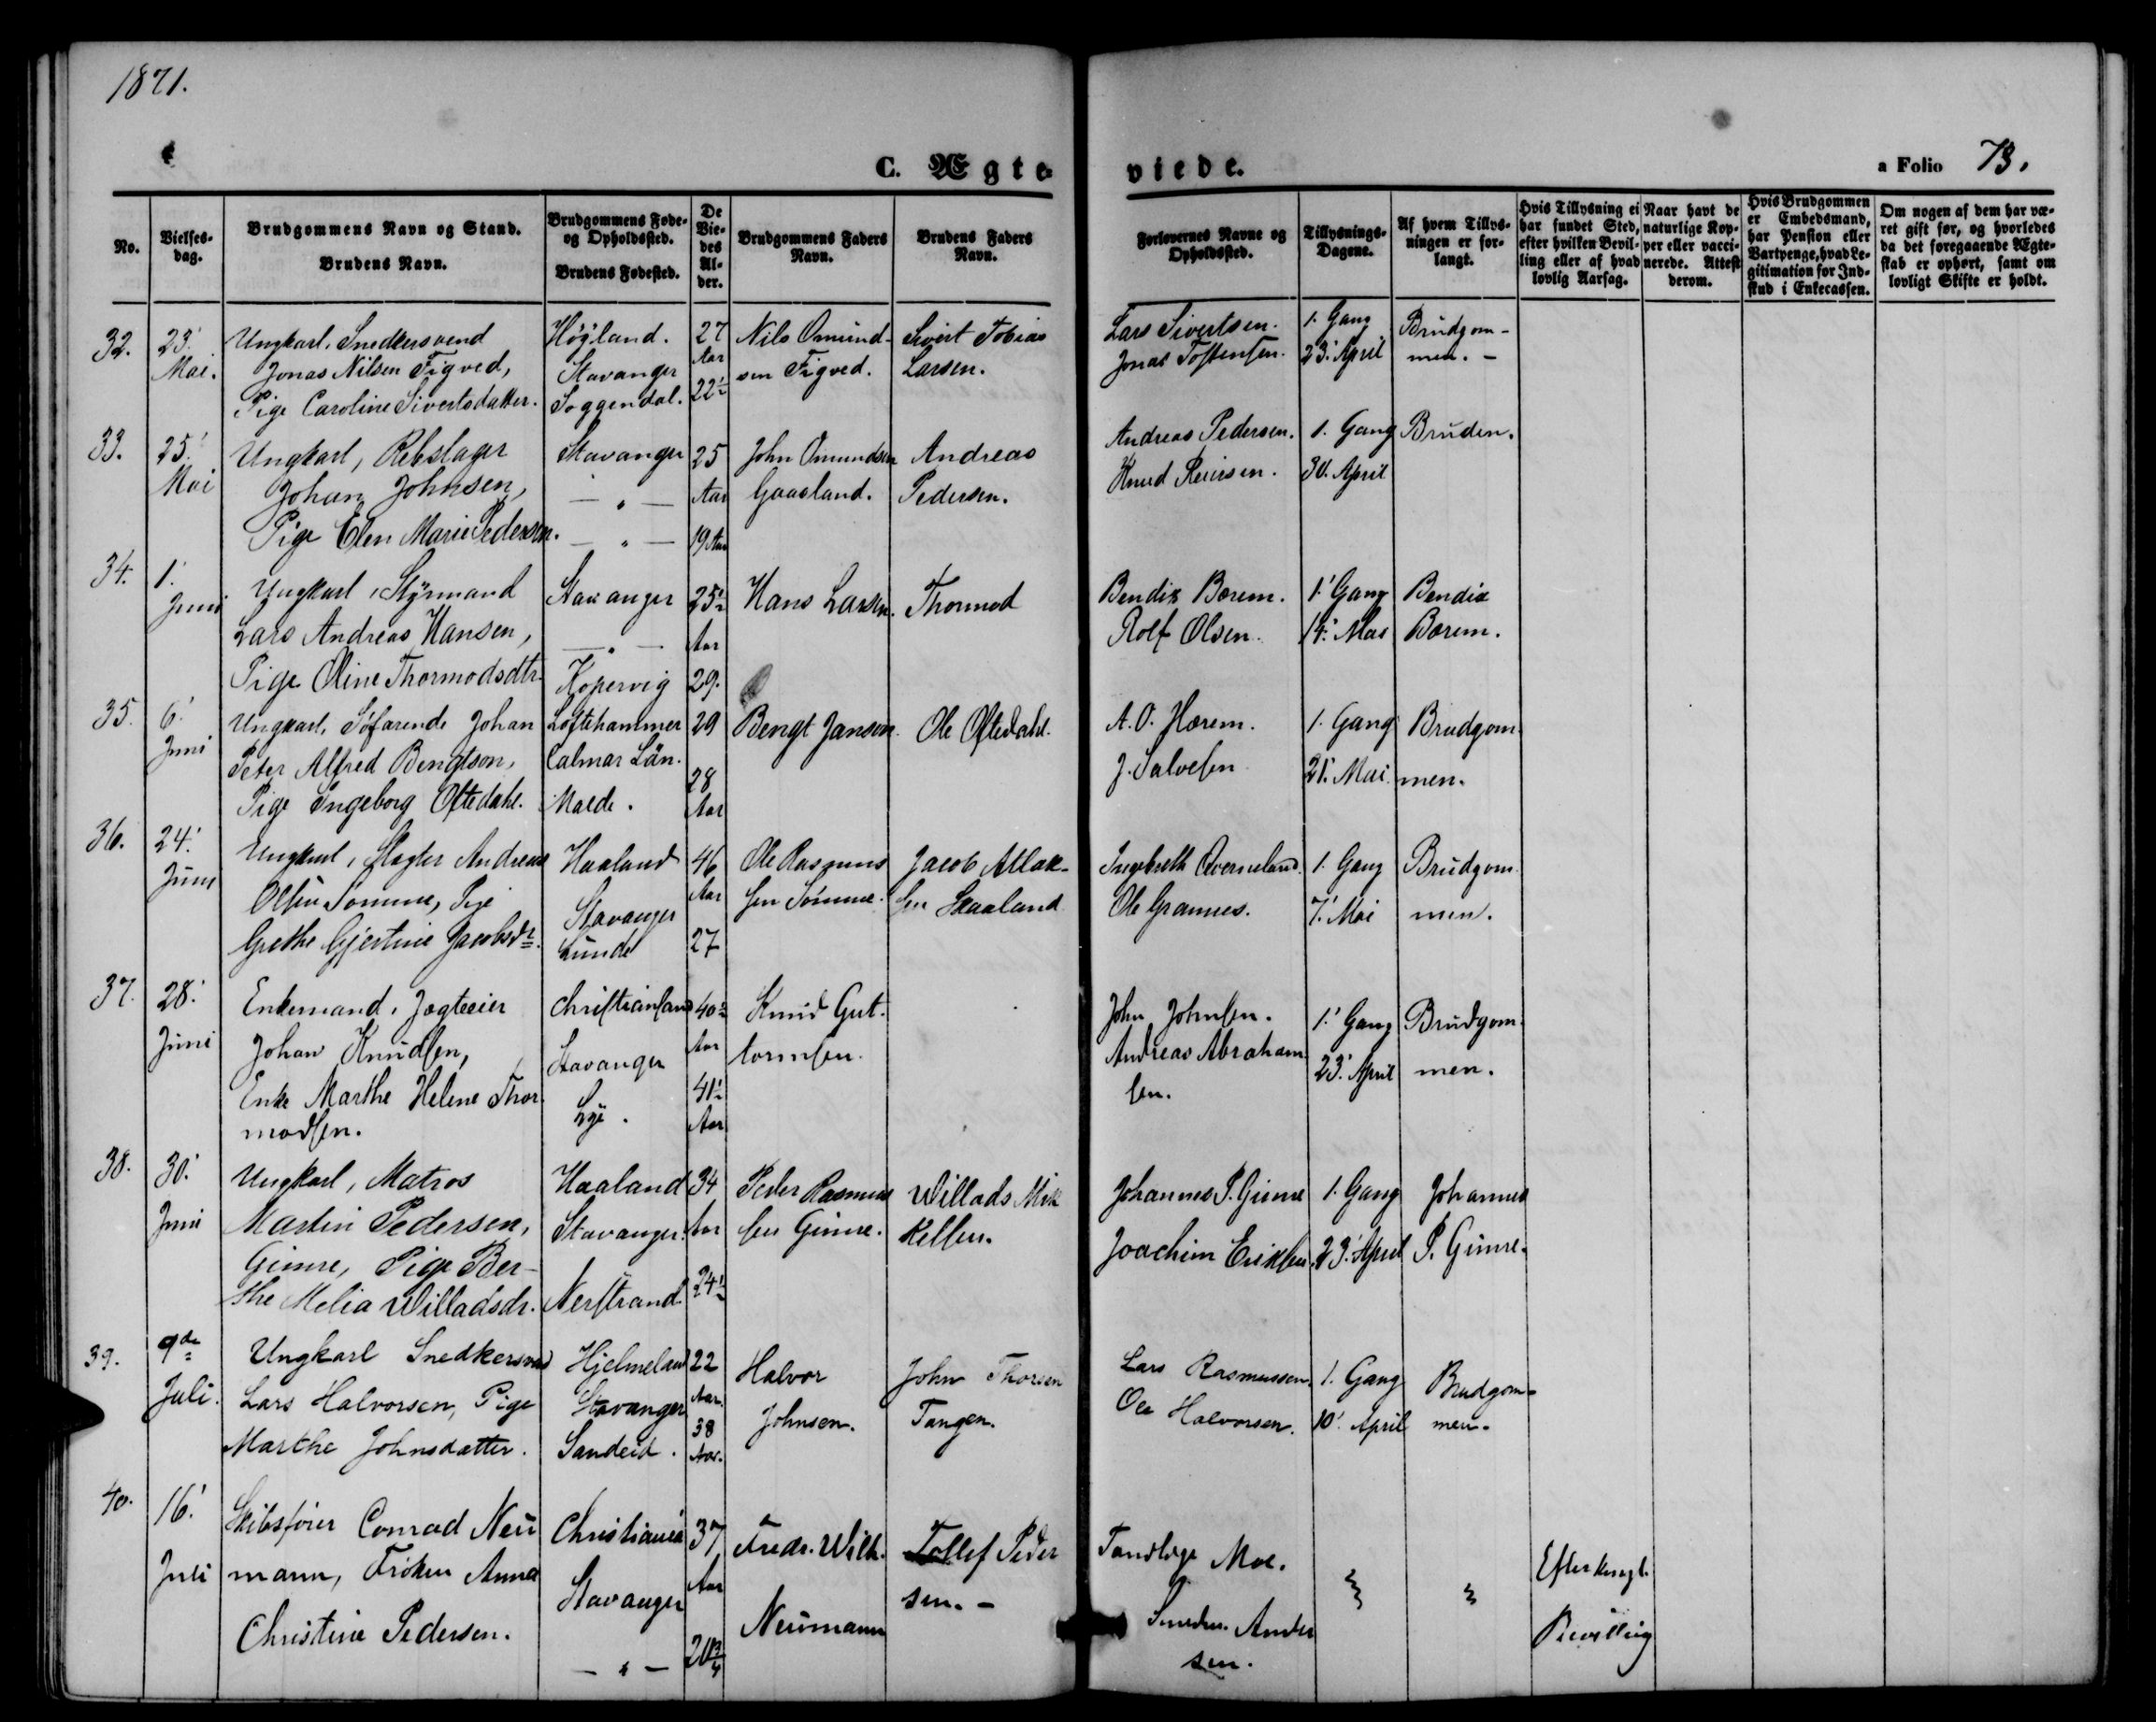 1871.
C. Ægte
viede.
a Folio 73.
No.
Vielses-
dag.
Brudgommens Navn og Stand.
Brudens Navn.
Brudgommens Føde-
og Opholdssted.
Brudens Fødested.
De
Vie-
des
Al-
der.
Brudgommens Faders
Navn.
Brudens Faders
Navn.
Forlovernes Navne og
Opholdssted.
Tillysnings-
Dagene.
Af hvem Tillys-
ningen er for-
langt.
Hvis Tillysning ei
har fundet Sted,
efter hvilken Bevil-
ling eller af hvad
lovlig Aarsag.
Naar havt de
naturlige Kop-
per eller vacci-
nerede. Attest
derom.
Hvis Brudgommen
er Embedsmand,
har Pension eller
Vartpenge, hvad Le-
gitimation for Ind-
skud i Enkecassen.
Om nogen af dem har væ-
ret gift før, og hvorledes
da det foregaaende Ægte-
skab er ophørt, samt om
lovligt Skifte er holdt.
32.
23.
Mai.
Ungkarl, Snedkersvend
Jonas Nilsen Tigved,
Pige Caroline Sivertsdatter.
Höyland.
Stavanger
Soggendal.
27
Aar
22½
Nils Omund-
sen Tigved.
Sivert Tobias
Larsen.
Lars Sivertsen.
Jonas Tostensen.
1. Gang
23. April
Brudgom-
men. -
33.
25.
Mai
Ungkarl, Rebslager
Johan Johnsen,
Pige Elen Marie Pedersen.
Stavanger
— " —
— " —
25
Aar
19 Aar
John Omundsen
Gaasland.
Andreas
Pedersen.
Andreas Pedersen.
Knud Reiersen.
1. Gang
30. April
Bruden.
34.
1.
Juni
Ungkarl, Styrmand
Lars Andreas Hansen,
Pige Oline Thormodsdtr.
Stavanger
— " —
Kopervig
25½
Aar
29.
Hans Larsen.
Thormod
Bendix Borem.
Rolf Olsen.
1. Gang
14. Mai
Bendix
Borem.
35.
6.
Juni
Ungkarl, Söfarende Johan
Peter Alfred Bengtson,
Pige Ingeborg Oftedahl.
Loftehammer
Calmar Län.
Malde.
29
28
Aar
Bengt Janson.
Ole Oftedahl.
A. O. Hærem.
J. Salvesen
1. Gang
21. Mai
Brudgom
men.
36.
24.
Juni
Ungkarl, Slagter Andreas
Olsen Sömme, Pige
Grethe Gjertine Jacobsdr.
Haaland
Stavanger
Lunde
46
Aar
27
Ole Rasmus
sen Sömme.
Jacob Atlak-
sen Skaaland
Ingebreth Qverneland.
Ole Grannes.
1. Gang
7. Mai
Brudgom
men.
37.
28.
Juni
Enkemand, Jagteeier
Johan Knudsen,
Enke Marthe Helene Thor
modsen.
Christiansand
Stavanger
Lye.
40½
Aar
41½
Aar
Knud Gut-
tormsen.
John Johnsen.
Andreas Abraham
sen.
1. Gang
23. April
Brudgom
men.
38.
30.
Juni
Ungkarl, Matros
Martin Pedersen,
Gimre, Pige Ber-
the Melia Willadsdr.
Haaland
Stavanger.
Nerstrand
34
Aar
24½
Peder Rasmus
sen Gimre.
Willads Mik
kelsen.
Johannes P. Gimre
Joachim Eriksen.
1. Gang
23. April
Johannes
P. Gimre.
39.
9de
Juli.
Ungkarl Snedkersvend
Lars Halvorsen, Pige
Marthe Johnsdatter.
Hjelmeland
Stavanger
Sandeid.
22
Aar.
38
Aar.
Halvor
Johnsen.
John Thorsen
Tangen.
Lars Rasmussen.
Ole Halvorsen.
1. Gang
10. April
Brudgom-
men.
40.
16.
Juli
Skibsförer Conrad Neu
mann, Fröken Anna
Christine Pedersen.
Christiania
Stavanger
— " —
37
Aar
20¾
Fredr. Wilh.
Neumann
Tollef Peder
sen. -
Tandlæge Moe.
Ander
sen.
Efter kongl.
Bevilling